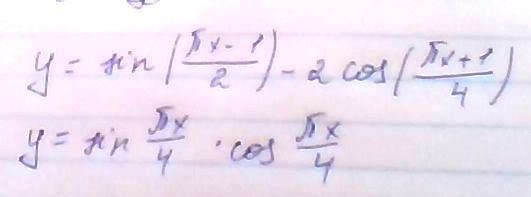 y = sin(πx-1/2) - 2 cos(πx+1/4)
y = sin πx/4 · cos πx/4